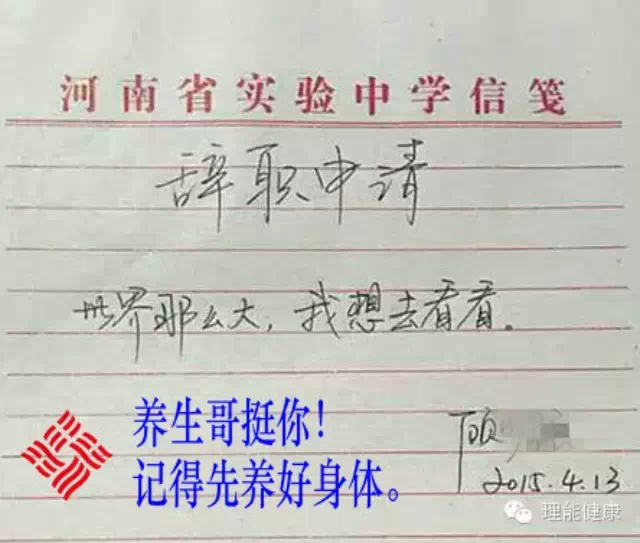 河南省实验中学信笺
辞职申请
世界那么大，我想去看看。
养生哥挺你!
记得先养好身体。
顾
2015.4.13
理能健康